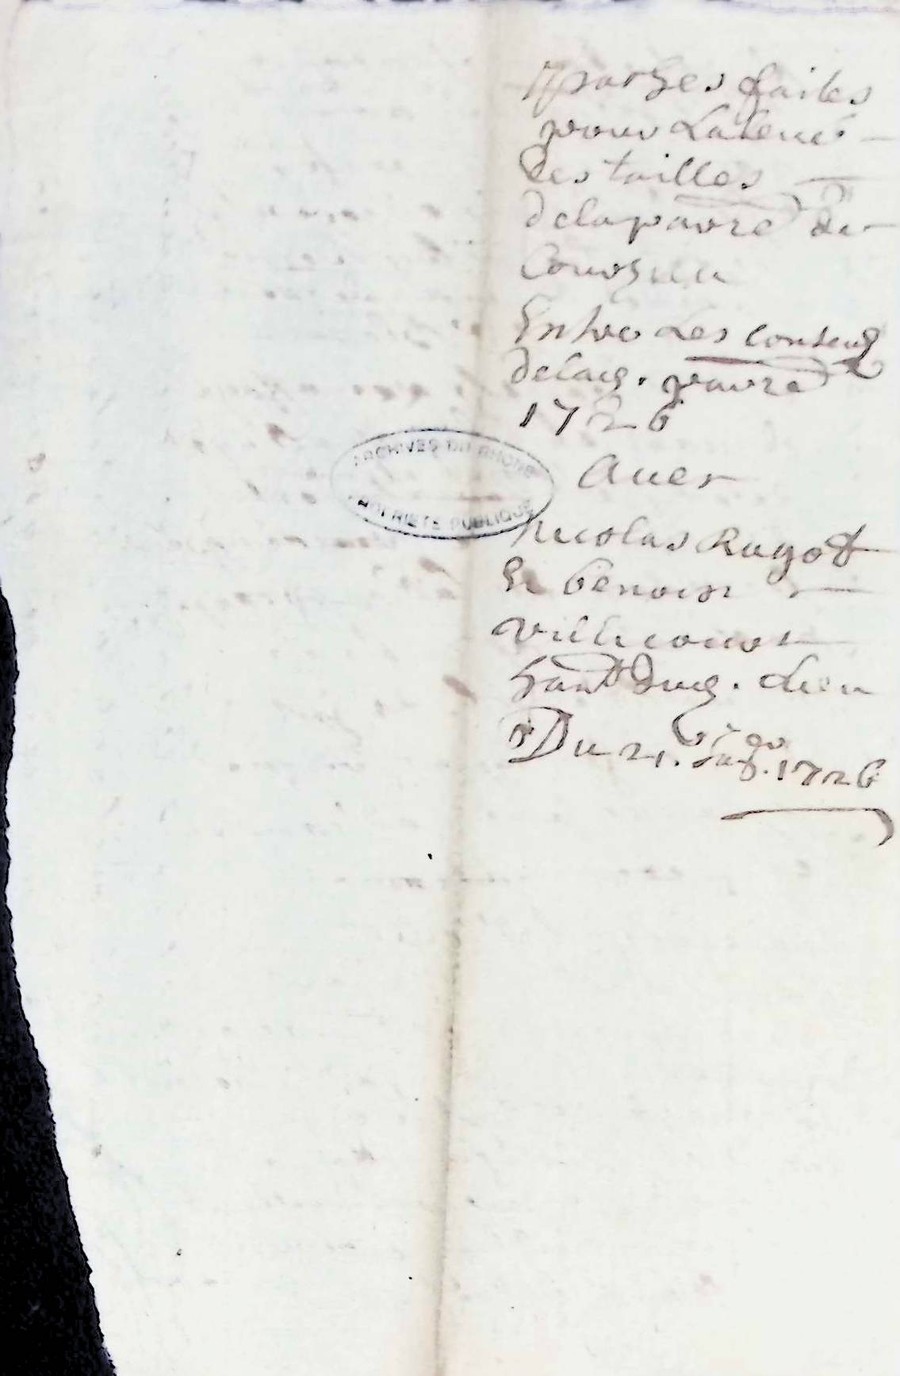 faites
pour La leué
Des tailles
dela paroisse de
Courzieu
Entre Les consuls
delad. paroisse
1726
Auec
Nicolas Ragot
Et Benoist
Villecourt
dud. Lieu
Du 21. 1726
ARCHIVES DU RHONE
PROPRIETE PUBLIQUE